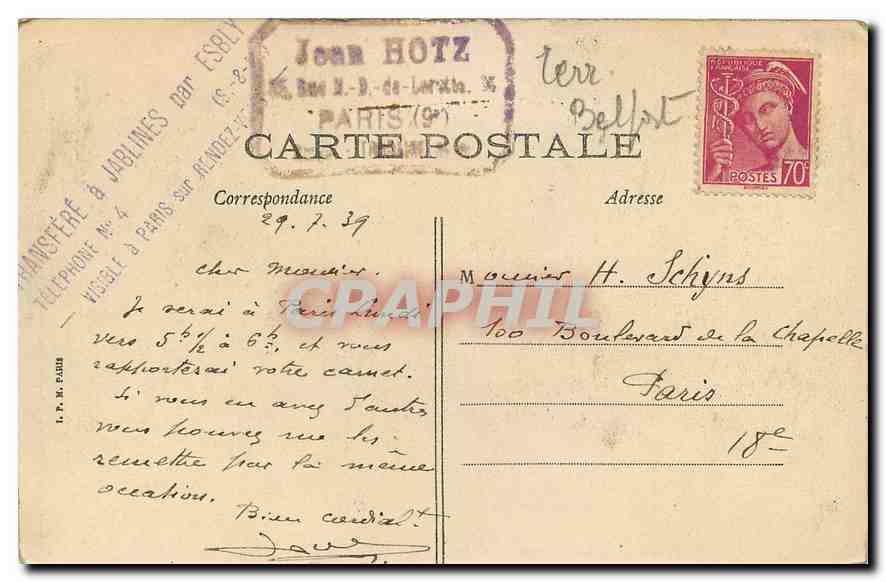 TRANSFÉRÉ à JABLINES par ESBLY
TÉLÉPHONE No 4 (S.-&-
VISIBLE à PARIS sur RENDEZ-V
Jean HOTZ
Rue N.-D.-de-Lorette.
PARIS (9e)
Terr
Belfort
REPUBLIQUE
FRANÇAISE
POSTES 70c
CARTE POSTALE
Correspondance
Adresse
29.7.39
Cher Monsieur.
Je serai à Paris Lundi
vers 5h 1/2 à 6h, et vous
rapporterai votre carnet.
Si vous en avez d'autres
vous pouvez me les
remettre par la même
occasion.
Bien cordialt
Monsieur H. Schyns
100 Boulevard de la Chapelle
Paris
18e
I. P. M. PARIS
CPAPHIL